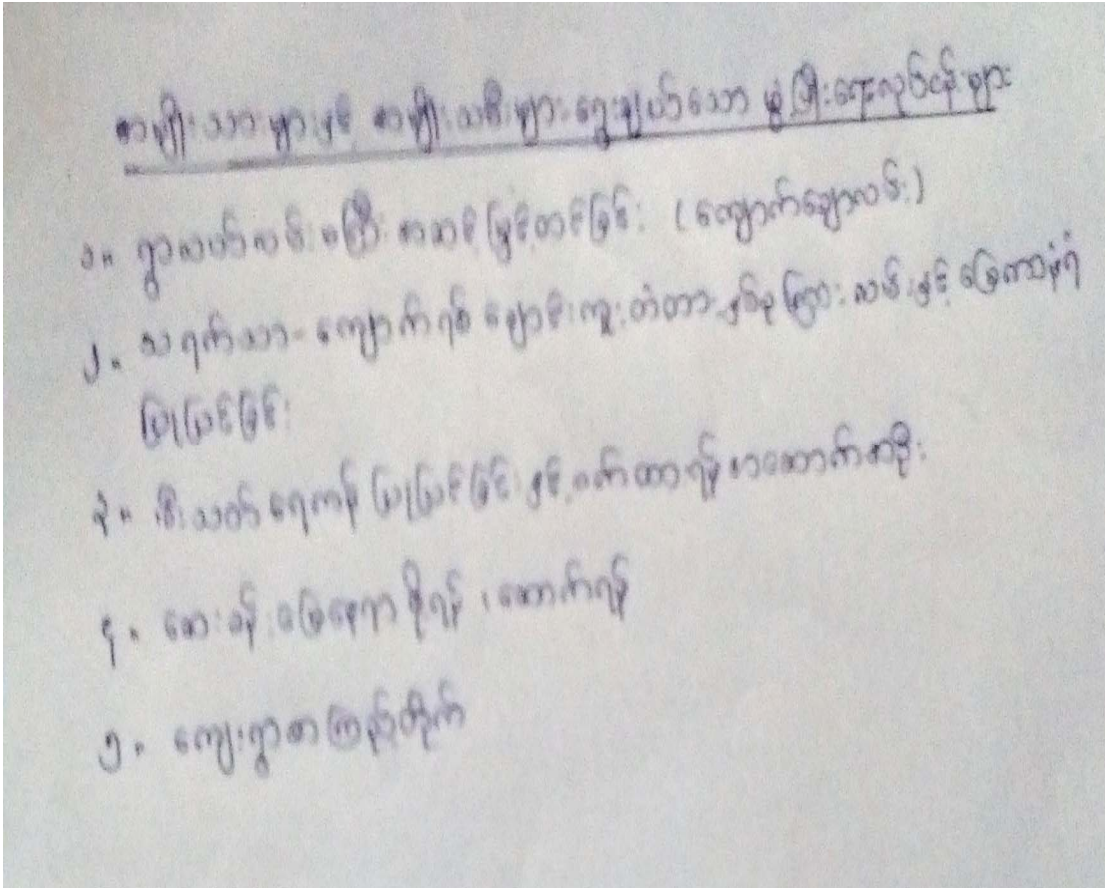 အမျိုးသားများနှင့် အမျိုးသမီးများရွေးချယ်သော ဖွံ့ဖြိုးရေးလုပ်ငန်းများ
၁။ ရွာလယ်လမ်းမကြီး အဆင့်မြှင့်တင်ခြင်း (ကျောက်ချောလမ်း)
၂။ သရက်သာ - ကျောက်ရစ် ချောင်းကူးတံတား နှစ်ခုကြား လမ်းနှင့် မြေကာနံရံ
ပြုပြင်ခြင်း
၃။ မီးသတ်ရေကန် ပြုပြင်ခြင်းနှင့် ဝက်ထာရန် အဆောက်အဦး
၄။ ဆေးခန်းမြေနေရာ ဖို့ရန်၊ ဆောက်ရန်
၅။ ကျေးရွာစာကြည့်တိုက်